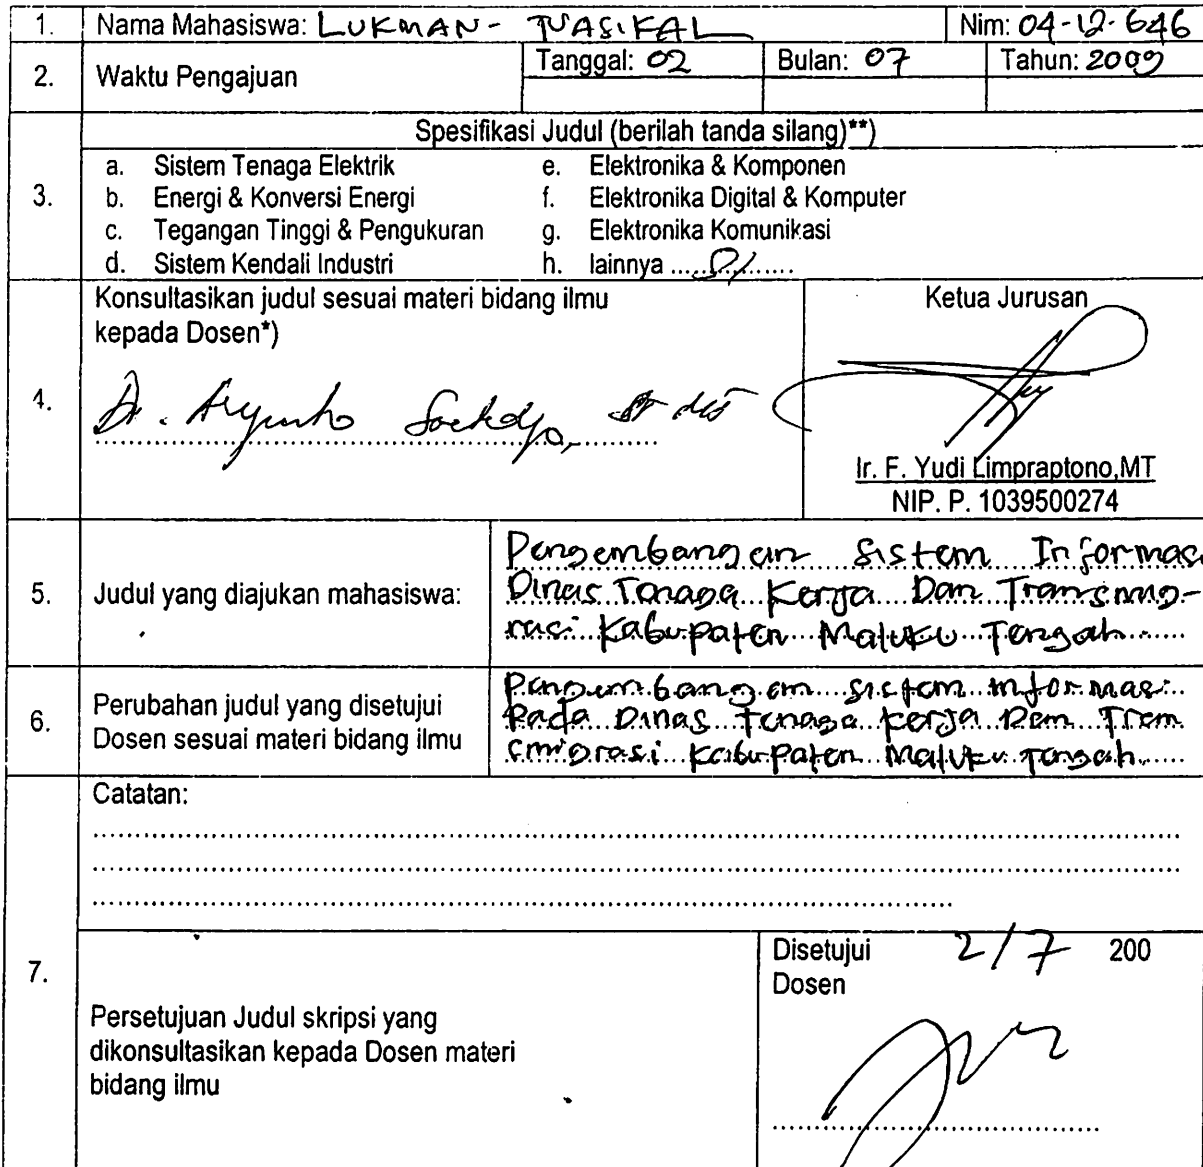 1. Nama Mahasiswa: LUKMAN - TUASIKAL Nim: 04-12-646
2. Waktu Pengajuan Tanggal: 02 Bulan: 07 Tahun: 2009
3. Spesifikasi Judul (berilah tanda silang)**)
a. Sistem Tenaga Elektrik
b. Energi & Konversi Energi
c. Tegangan Tinggi & Pengukuran
d. Sistem Kendali Industri
e. Elektronika & Komponen
f. Elektronika Digital & Komputer
g. Elektronika Komunikasi
h. lainnya ..............
4. Konsultasikan judul sesuai materi bidang ilmu
kepada Dosen*)
Dr. Aryunto Soetedjo, ST MT
Ketua Jurusan
Ir. F. Yudi Limpraptono,MT
NIP. P. 1039500274
5. Judul yang diajukan mahasiswa:
Pengembangan Sistem Informasi
Dinas Tenaga Kerja Dan Transmig-
rasi Kabupaten Maluku Tengah
6. Perubahan judul yang disetujui
Dosen sesuai materi bidang ilmu
Pengembangan sistem informasi
Pada Dinas tenaga kerja Dan Tran
smigrasi Kabupaten Maluku Tengah
7. Catatan:
Persetujuan Judul skripsi yang
dikonsultasikan kepada Dosen materi
bidang ilmu
Disetujui 2/7 200
Dosen